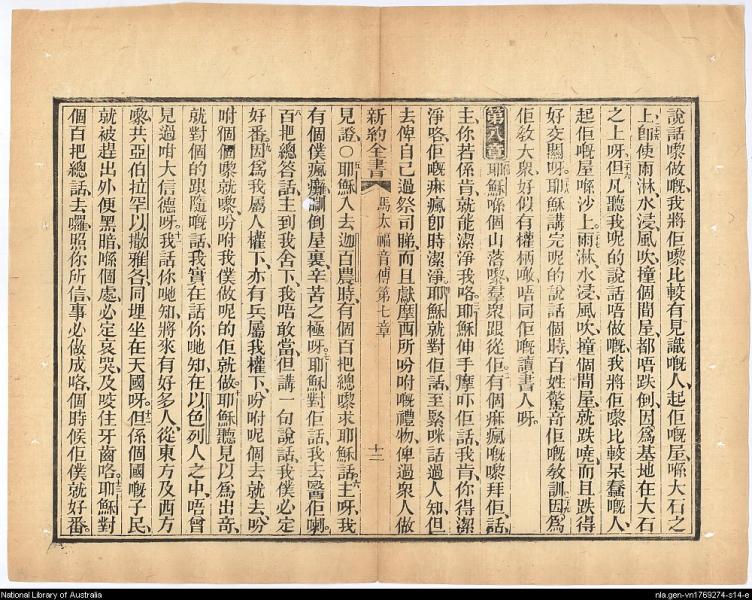 說話嚟做嘅、我將佢嚟比較有見識嘅人、起佢嘅屋喺大石之
上、卽使雨淋水浸、風吹撞個間屋、都唔跌倒、因爲基地在大石
之上呀。但凡聽我呢的說話唔做嘅、我將佢嚟比較呆蠢嘅人、
起佢嘅屋喺沙上。雨淋水浸、風吹、撞個間屋、就跌嘵、而且跌得
好交關呀。耶穌講完呢的說話個時、百姓驚奇佢嘅教訓、因爲
佢教大衆、好似有權柄噉、唔同佢嘅讀書人呀。
第八章 耶穌喺個山落嚟、羣衆跟從佢。有個痳瘋嘅嚟拜佢、話、
主、你若係肯、就能潔淨我咯。耶穌伸手摩吓佢話、我肯、你得潔
淨咯、佢嘅痳瘋卽時潔淨。耶穌就對佢話、至緊咪話過人知、但
去俾自己過祭司睇、而且獻摩西所吩咐嘅禮物、俾過衆人做
新約全書 馬太福音傳第七章 十二
見證。○耶穌入去迦百農時、有個百把總嚟求耶穌話、主呀、我
有個僕瘋癱瞓倒屋裏、辛苦之極呀。耶穌對佢話、我去醫佢喇。
百把總答話、主到我舍下、我唔敢當、但講一句說話、我僕必定
好番。因爲我屬人權下、亦有兵屬我權下、吩咐呢個去就去、吩
咐個個嚟就嚟、吩咐我僕做呢的佢就做。耶穌聽見以爲出奇、
就對個的跟隨嘅話、我實在話你哋知、在以色列人之中、唔曾
見過咁大信德呀。我話你哋知、將來有好多人、從東方及西方
嚟、共亞伯拉罕以撒雅各、同埋坐在天國呀。但係個國嘅子民、
就被趕出外便黑暗、喺個處、必定哀哭、及咬住牙齒咯。耶穌對
個百把總話、去囉、照你所信、事必做成咯、個時候佢僕就好番。